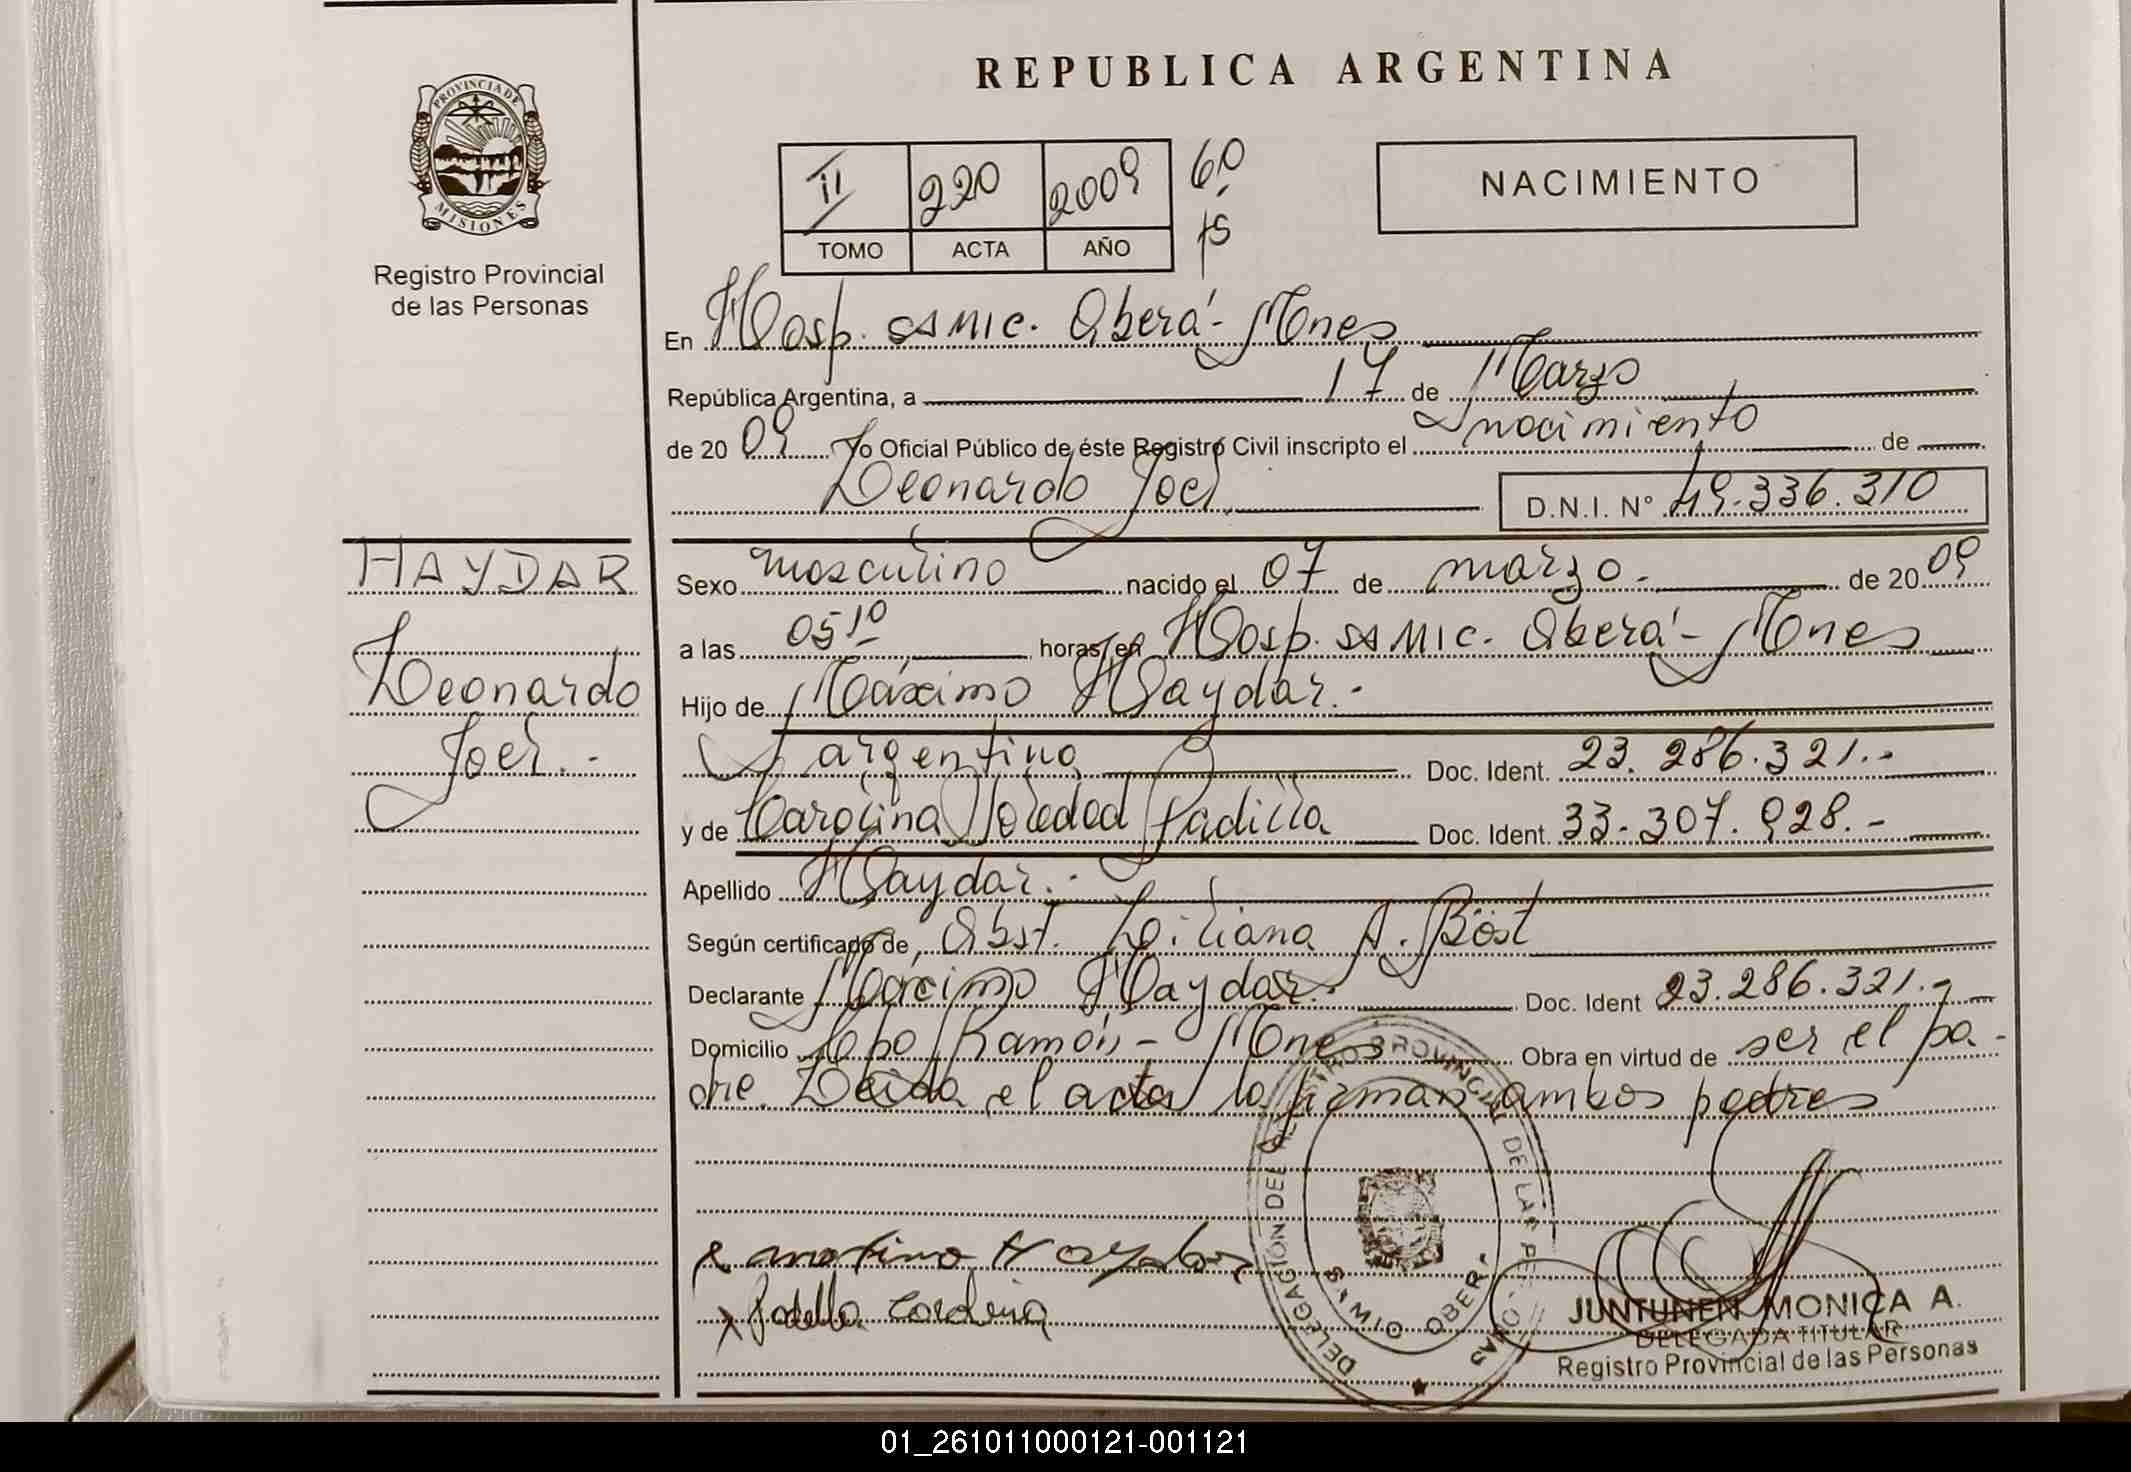 REPUBLICA ARGENTINA
PROVINCIA DE
MISIONES
Registro Provincial
de las Personas
II 220 2009 60
TOMO ACTA AÑO fs
NACIMIENTO
En Hosp. SAMIC. Oberá - Mnes
República Argentina, a 17 de Marzo
de 2009 Yo Oficial Público de éste Registro Civil inscripto el nacimiento de
Leonardo Joel D.N.I. N° 49.336.310
HAYDAR
Leonardo
Joel.-
Sexo masculino nacido el 07 de marzo. de 2009
a las 05 10 horas, en Hosp. SAMIC. Oberá - Mnes
Hijo de Máximo Haydar.-
argentino Doc. Ident. 23.286.321.-
y de Carolina Soledad Padilla Doc. Ident. 33.307.928.-
Apellido Haydar.-
Según certificado de Obst. Liliana A. Böst
Declarante Máximo Haydar.- Doc. Ident 23.286.321.-
Domicilio Cpo Ramón - Mnes Obra en virtud de ser el pa-
dre. Leida el acta la firman ambos padres
Haydar
Padilla Carolina
DELEGACIÓN DEL REGISTRO PROVINCIAL DE LAS
OBERA
JUNTUNEN MONICA A.
DELEGADA TITULAR
Registro Provincial de las Personas
01_261011000121-001121